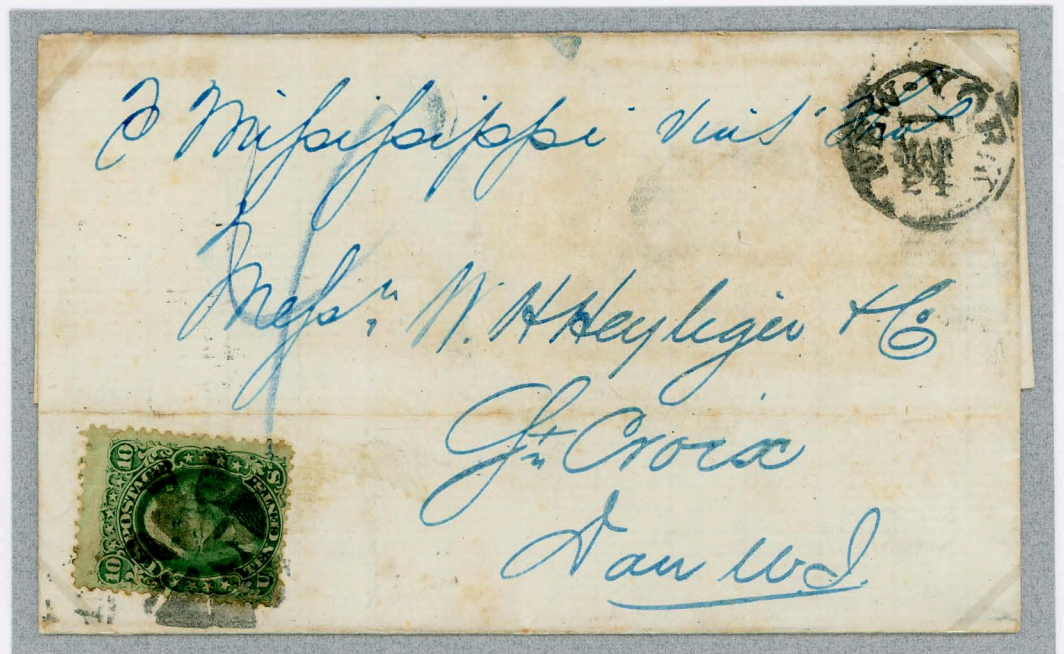 P Mississippi via St
NEW-YORK
MAR
24
Messrs W. H Heyliger & Co
St. Croix
Dan W. I.
10
10
U.S. POSTAGE
TEN CENTS
10
10